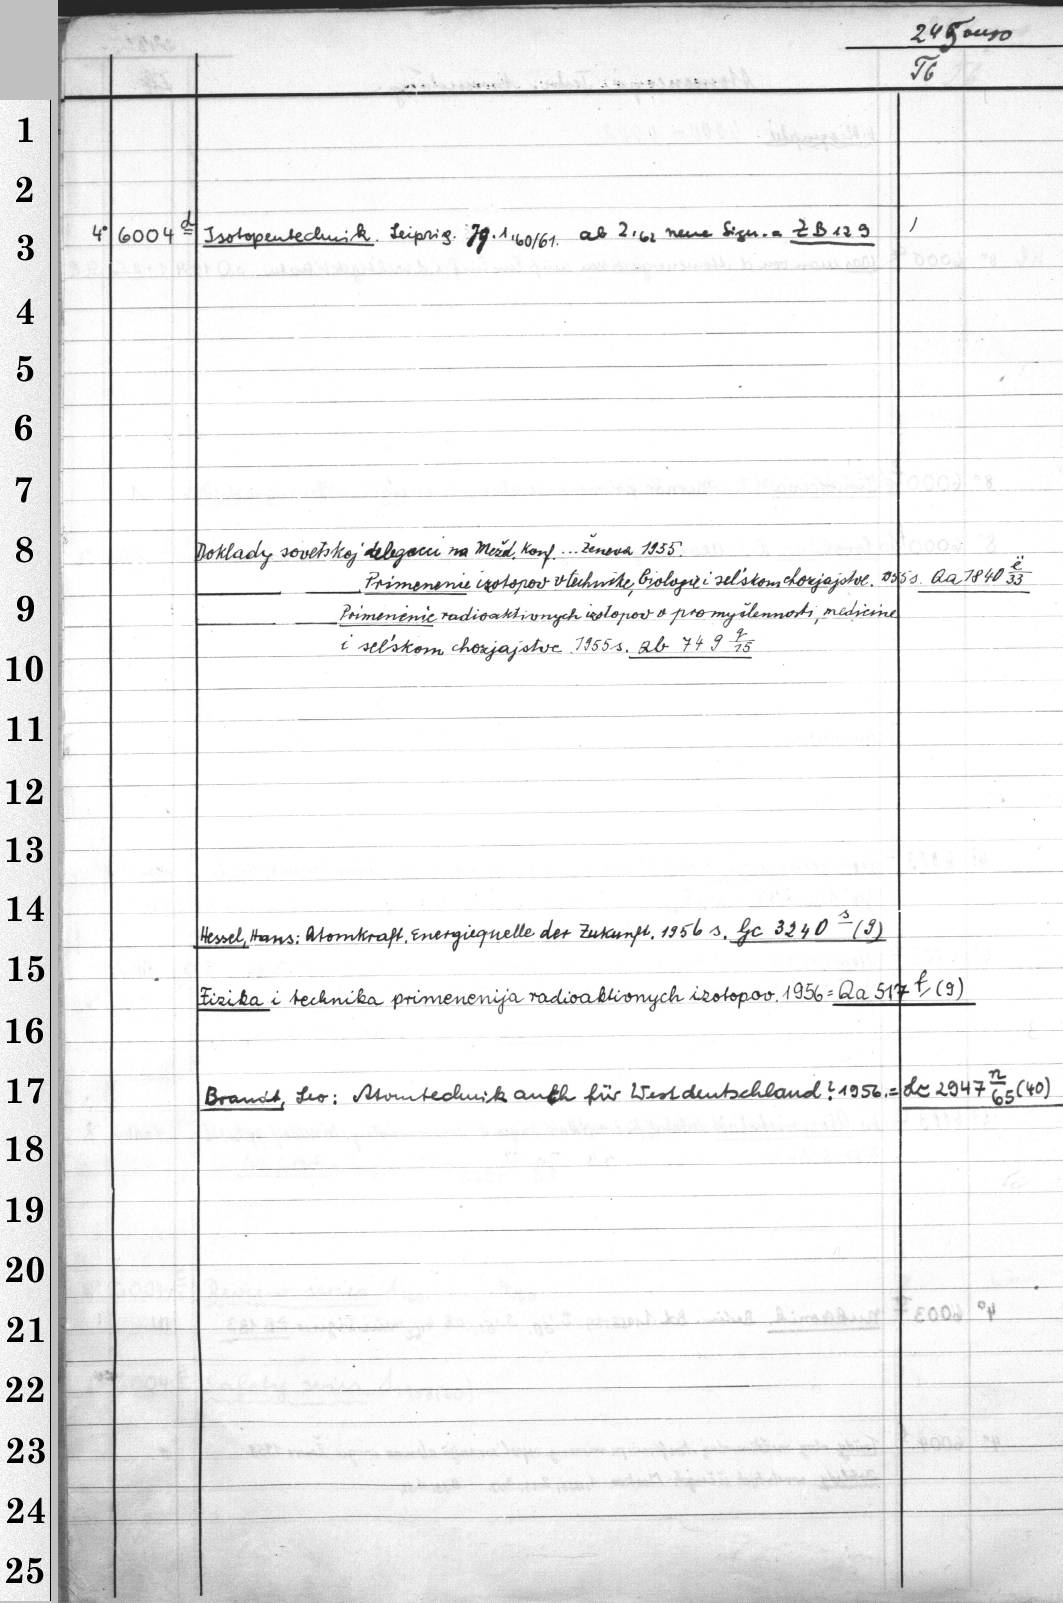 245
Tb
1
2
3
4° 6004 d Isotopentechnik. Leipzig. Jg. 1,60/61. ab 2,62 neue Sign. = ZB 129 1
4
5
6
7
8
Doklady sovetskoj delegacii na Mežd. Konf. ... Ženeva 1955.
Primenenie izotopov v technike, biologii i sel'skom chozjajstve. 1955 s. Qa 7840 ë/33
9
Primenenie radioaktivnych izotopov v promyšlennosti, medicine
i sel'skom chozjajstve 1955 s. Qb 749 q/15
10
11
12
13
14
Hessel, Hans: Atomkraft, Energiequelle der Zukunft. 1956 s. Gc 3240 s (9)
15
Fizika i technika primenenija radioaktivnych izotopov. 1956 = Qa 517 f (9)
16
17
Brandt, Leo: Atomtechnik auch für Westdeutschland? 1956. = Lc 2947 n/65 (40)
18
19
20
21
22
23
24
25